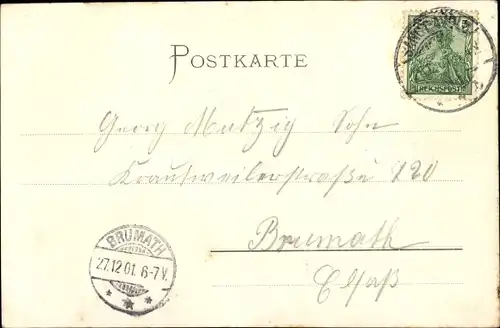 POSTKARTE
REICHSPOST
Georg Mutzig Sohn
Krautweilerstraße 120
Brumath
Elsaß
BRUMATH
27.12.01. 6-7 V.